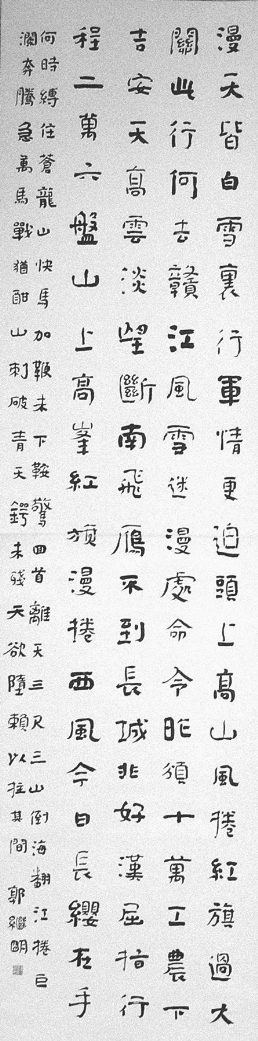 漫天皆白雪裏行軍情更迫頭上高山風捲紅旗過大
關此行何去贛江風雪迷漫處命令昨頒十萬工農下
吉安天高雲淡望斷南飛雁不到長城非好漢屈指行
程二萬六盤山上高峯紅旗漫捲西風今日長纓在手
何時縛住蒼龍山快馬加鞭未下鞍驚回首離天三尺三山倒海翻江捲巨
瀾奔騰急萬馬戰猶酣山刺破青天鍔未殘天欲墮賴以拄其間郭繼明